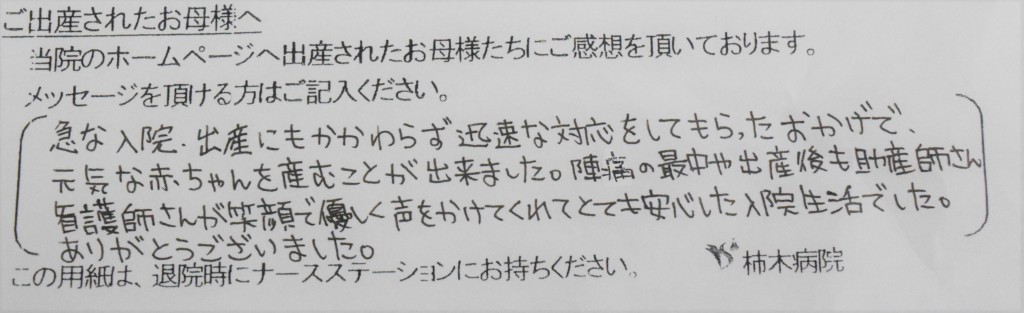 ご出産されたお母様へ
当院のホームページへ出産されたお母様たちにご感想を頂いております。
メッセージを頂ける方はご記入ください。
急な入院、出産にもかかわらず迅速な対応をしてもらったおかげで、
元気な赤ちゃんを産むことが出来ました。陣痛の最中や出産後も助産師さん
看護師さんが笑顔で優しく声をかけてくれてとても安心した入院生活でした。
ありがとうございました。
この用紙は、退院時にナースステーションにお持ちください。
柿木病院